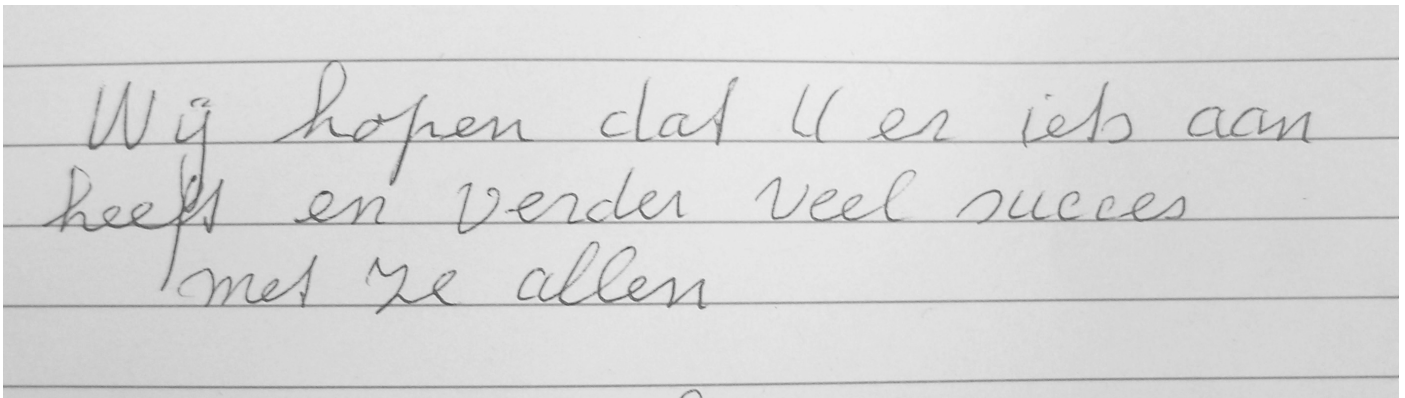 Wij hopen dat U er iets aan
heeft en verder veel succes
met ze allen